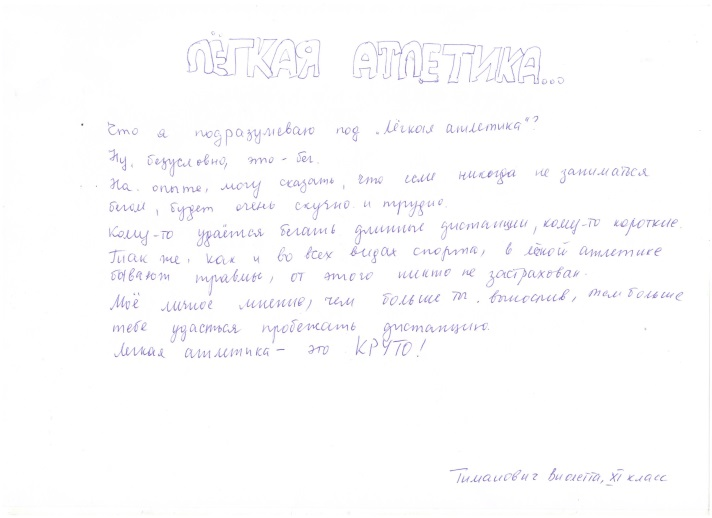 ЛЁГКАЯ АТЛЕТИКА...
Что я подразумеваю под „Лёгкая атлетика“?
Ну, безусловно, это - бег.
На опыте, могу сказать, что если никогда не заниматься
бегом, будет очень скучно и трудно.
Кому-то удаётся бегать длинные дистанции, кому-то короткие.
Так же, как и во всех видах спорта, в лёгкой атлетике
бывают травмы, от этого никто не застрахован.
Моё личное мнению, чем больше ты вынослив, тем больше
тебе удасться пробежать дистанцию.
Легкая атлетика - это КРУТО!
Тиманович Виолетта, XI класс